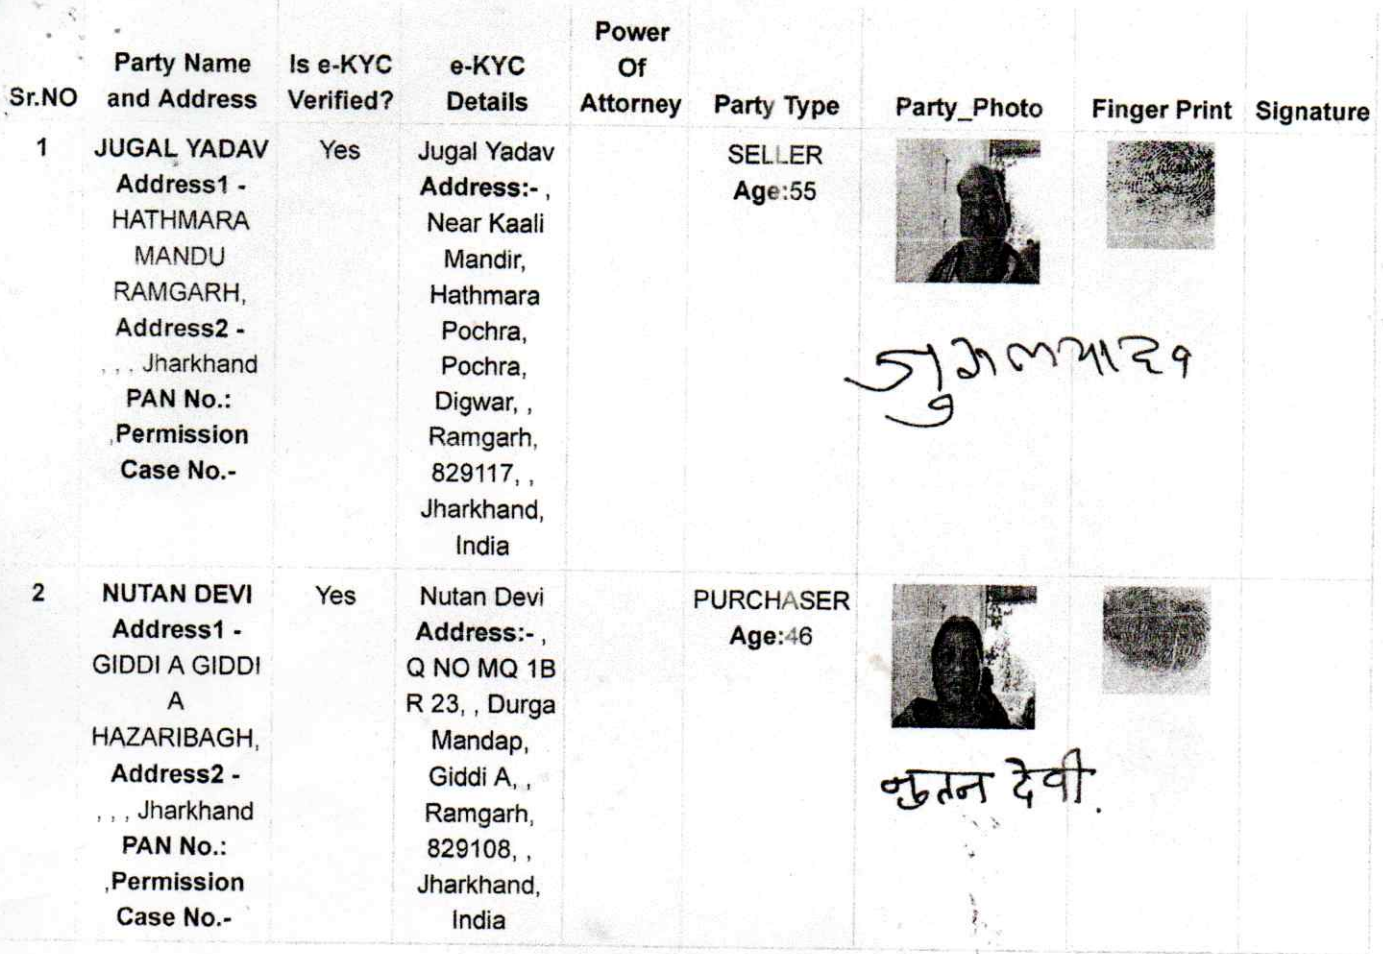 Sr.NO Party Name and Address Is e-KYC Verified? e-KYC Details Power Of Attorney Party Type Party_Photo Finger Print Signature
1
JUGAL YADAV
Address1 -
HATHMARA
MANDU
RAMGARH,
Address2 -
, , , Jharkhand
PAN No.:
,Permission
Case No.-
Yes
Jugal Yadav
Address:- ,
Near Kaali
Mandir,
Hathmara
Pochra,
Pochra,
Digwar, ,
Ramgarh,
829117, ,
Jharkhand,
India
SELLER
Age:55
जुगल यादव
2
NUTAN DEVI
Address1 -
GIDDI A GIDDI
A
HAZARIBAGH,
Address2 -
, , , Jharkhand
PAN No.:
,Permission
Case No.-
Yes
Nutan Devi
Address:- ,
Q NO MQ 1B
R 23, , Durga
Mandap,
Giddi A, ,
Ramgarh,
829108, ,
Jharkhand,
India
PURCHASER
Age:46
नुतन देवी.